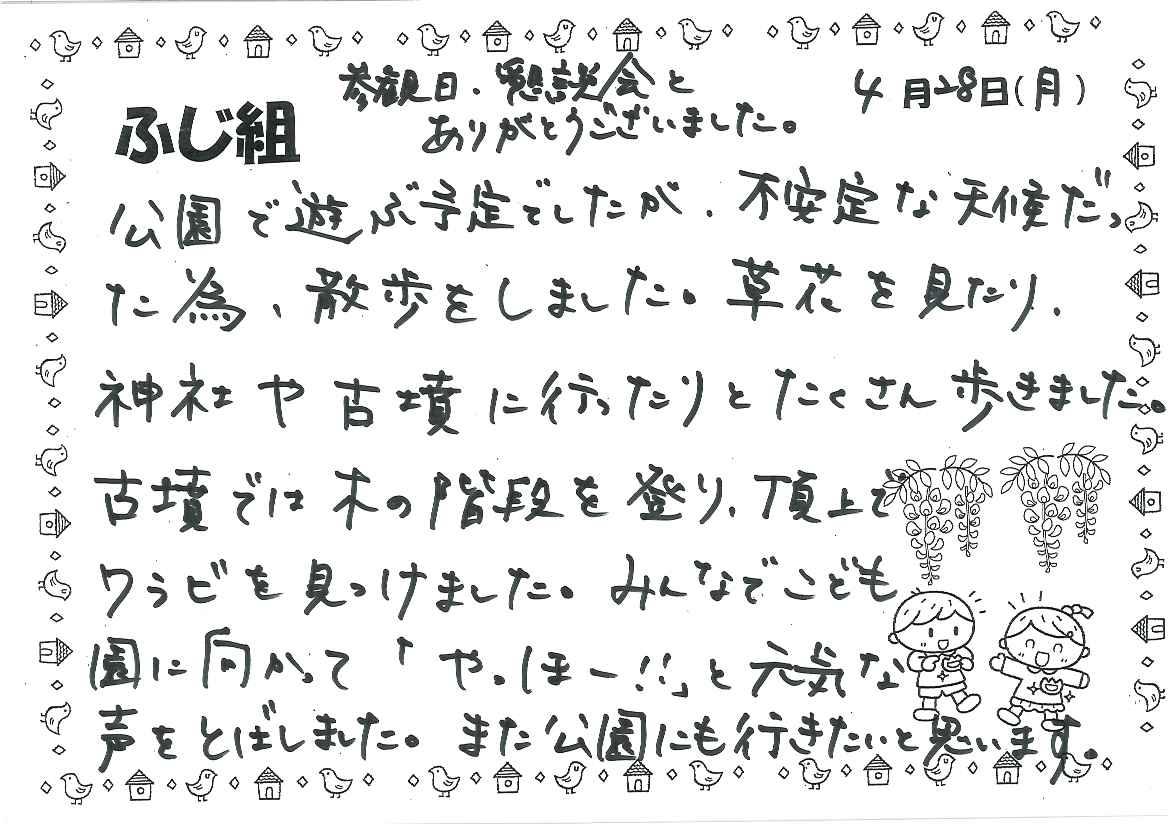 参観日、懇談会と
ありがとうございました。
4月28日(月)
ふじ組
公園で遊ぶ予定でしたが、不安定な天候だっ
た為、散歩をしました。草花を見たり、
神社や古墳に行ったりとたくさん歩きました。
古墳では木の階段を登り、頂上で
ワラビを見つけました。みんなでこども
園に向かって「やっほー!!」と元気な
声をとばしました。また公園にも行きたいと思います。